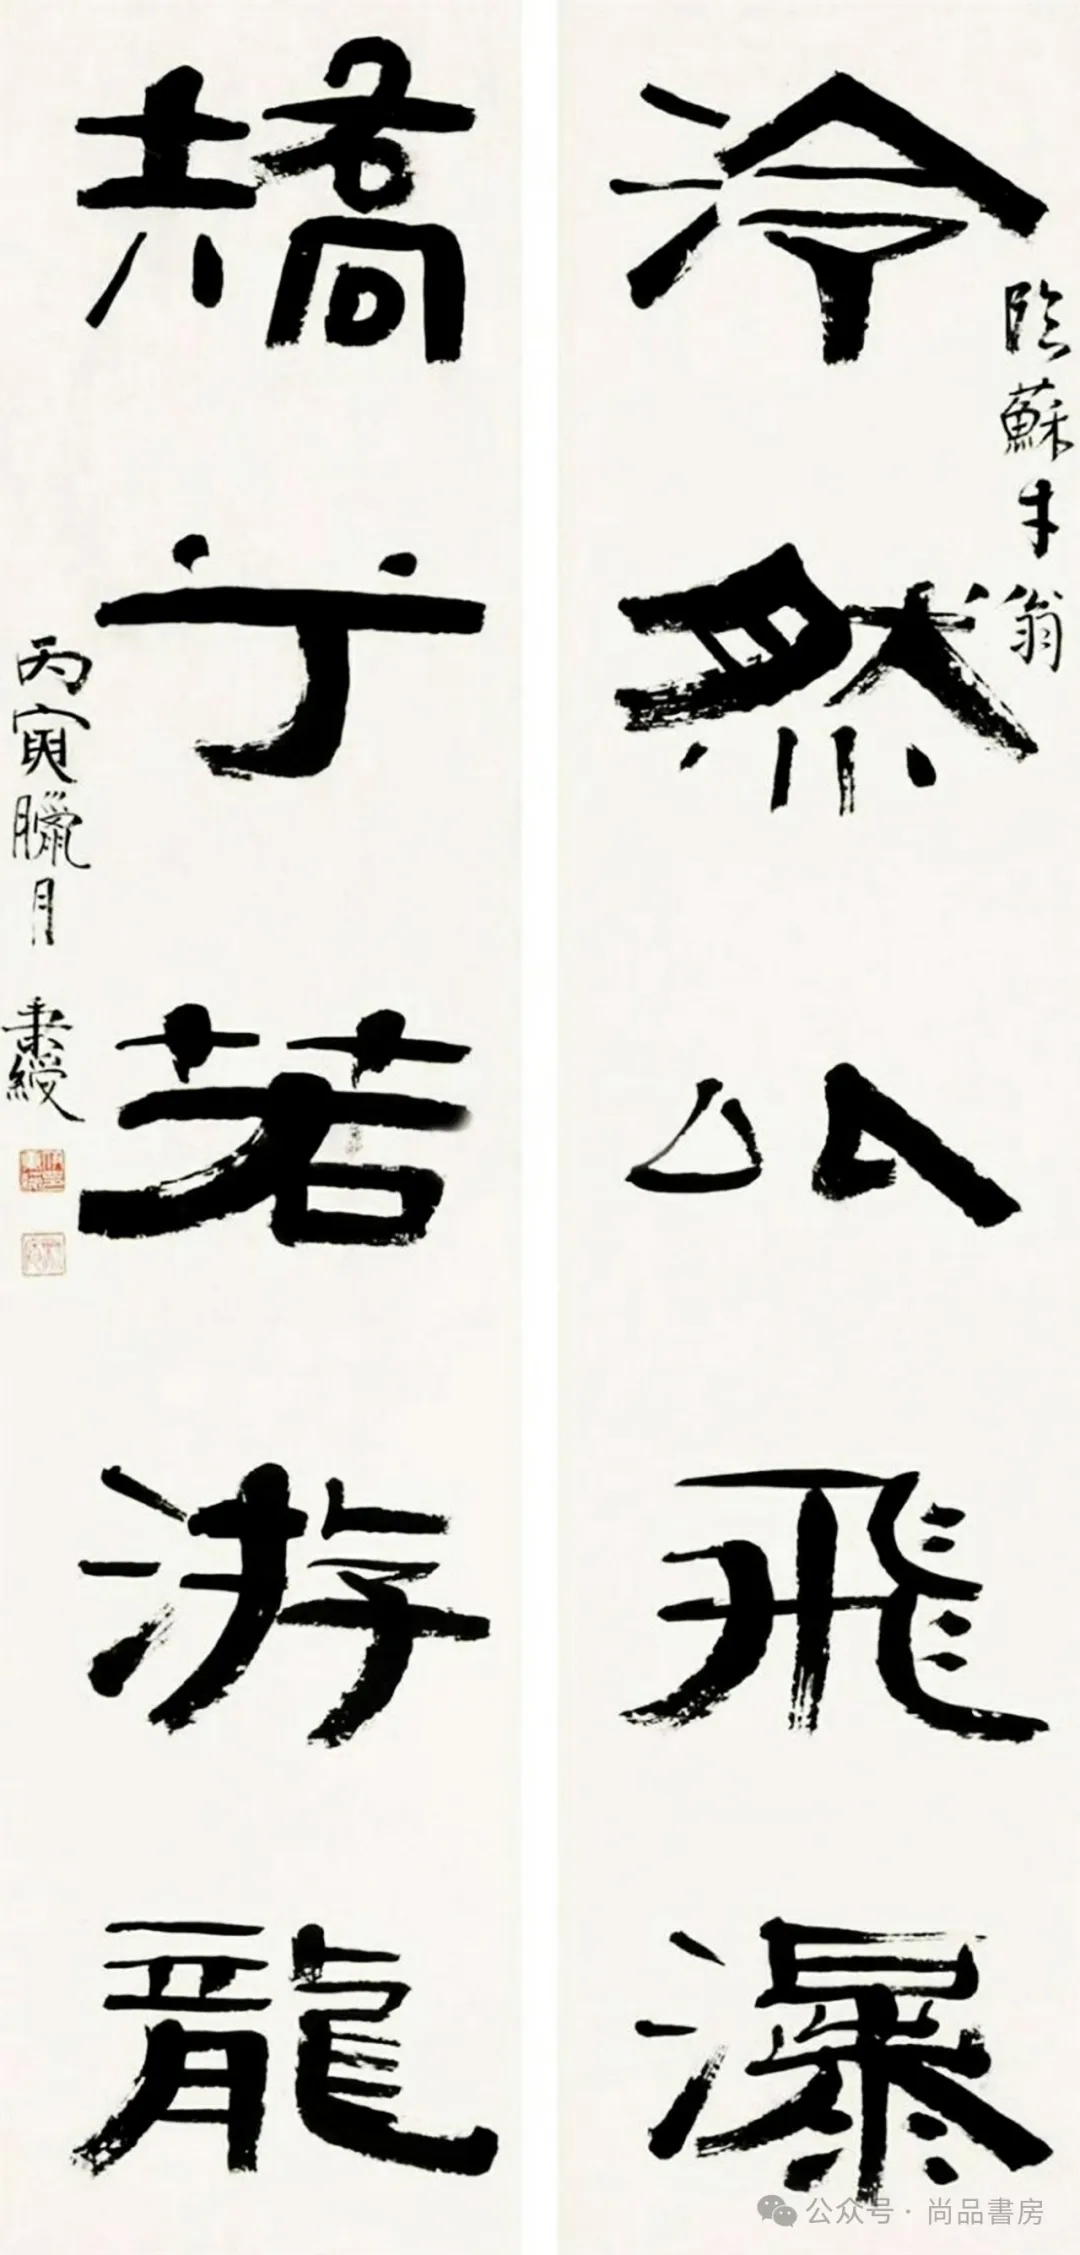 泠然以飛瀑
臨蘇才翁
矯兮若游龍
丙寅臘月 秉綬
公众号 · 尚品書房